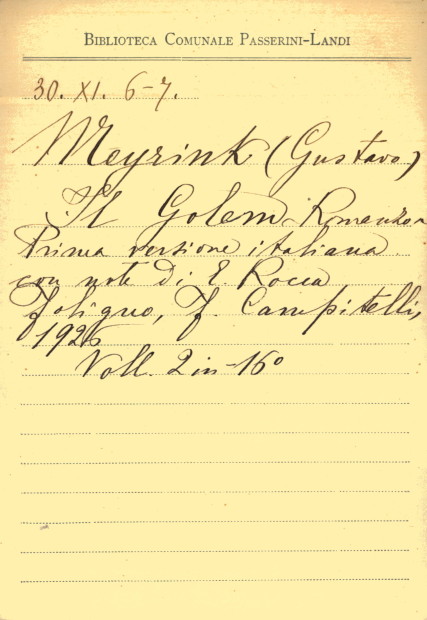 BIBLIOTECA COMUNALE PASSERINI-LANDI
30. XI. 6-7.
Meyrink (Gustavo)
Il Golem - Romanzo -
Prima versione italiana
con note di E. Rocca
Foligno, F. Campitelli,
1926
Voll. 2 in-16°